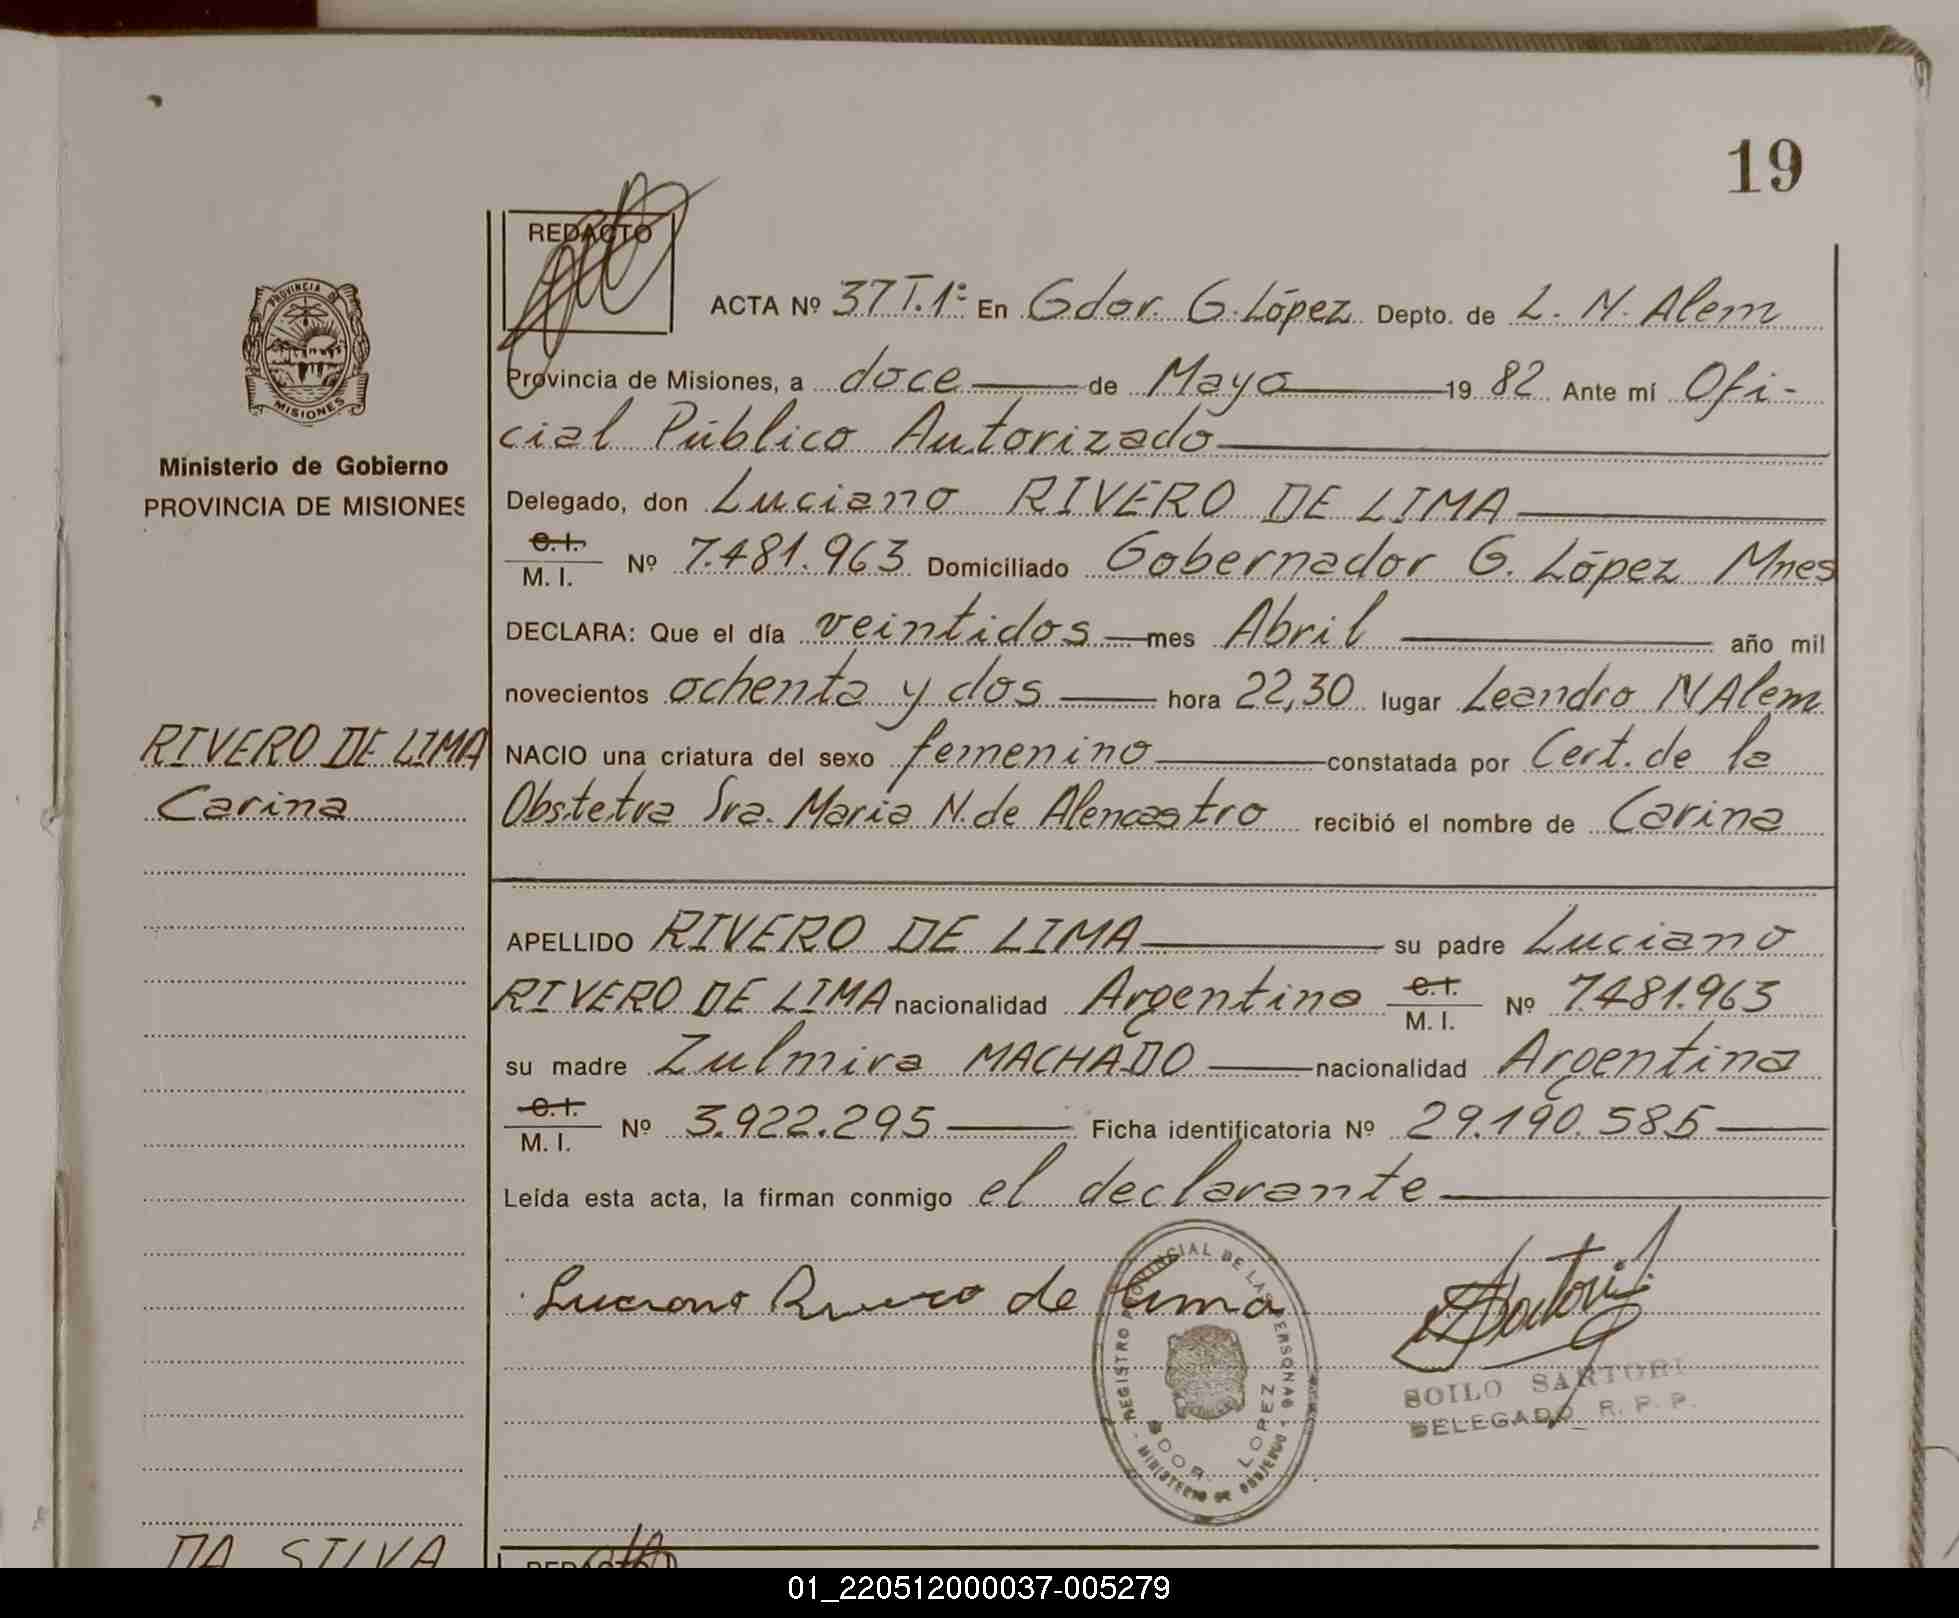 19
REDACTO
ACTA Nº 37 T.1º En Gdor. G. López Depto. de L. N. Alem
Provincia de Misiones, a doce de Mayo 19 82 Ante mí Ofi-
cial Público Autorizado
Delegado, don Luciano RIVERO DE LIMA
C.I.
M. I. Nº 7.481.963 Domiciliado Gobernador G. López Mnes
DECLARA: Que el día veintidos mes Abril año mil
novecientos ochenta y dos hora 22,30 lugar Leandro N Alem
NACIO una criatura del sexo femenino constatada por Cert. de la
Obstetra Sra. Maria N. de Alencastro recibió el nombre de Carina
APELLIDO RIVERO DE LIMA su padre Luciano
RIVERO DE LIMA nacionalidad Argentino C.I. M. I. Nº 7.481.963
su madre Zulmira MACHADO nacionalidad Argentina
C.I.
M. I. Nº 3.922.295 Ficha identificatoria Nº 29.190.585
Leída esta acta, la firman conmigo el declarante
Luciano Rivero de Lima
SOILO SARTORI
DELEGADO R. P. P.
REGISTRO PROVINCIAL DE LAS PERSONAS - MINISTERIO DE GOBIERNO -
GDOR. LOPEZ
PROVINCIA DE
MISIONES
Ministerio de Gobierno
PROVINCIA DE MISIONES
RIVERO DE LIMA
Carina
DA SILVA
REDACTO
01_220512000037-005279